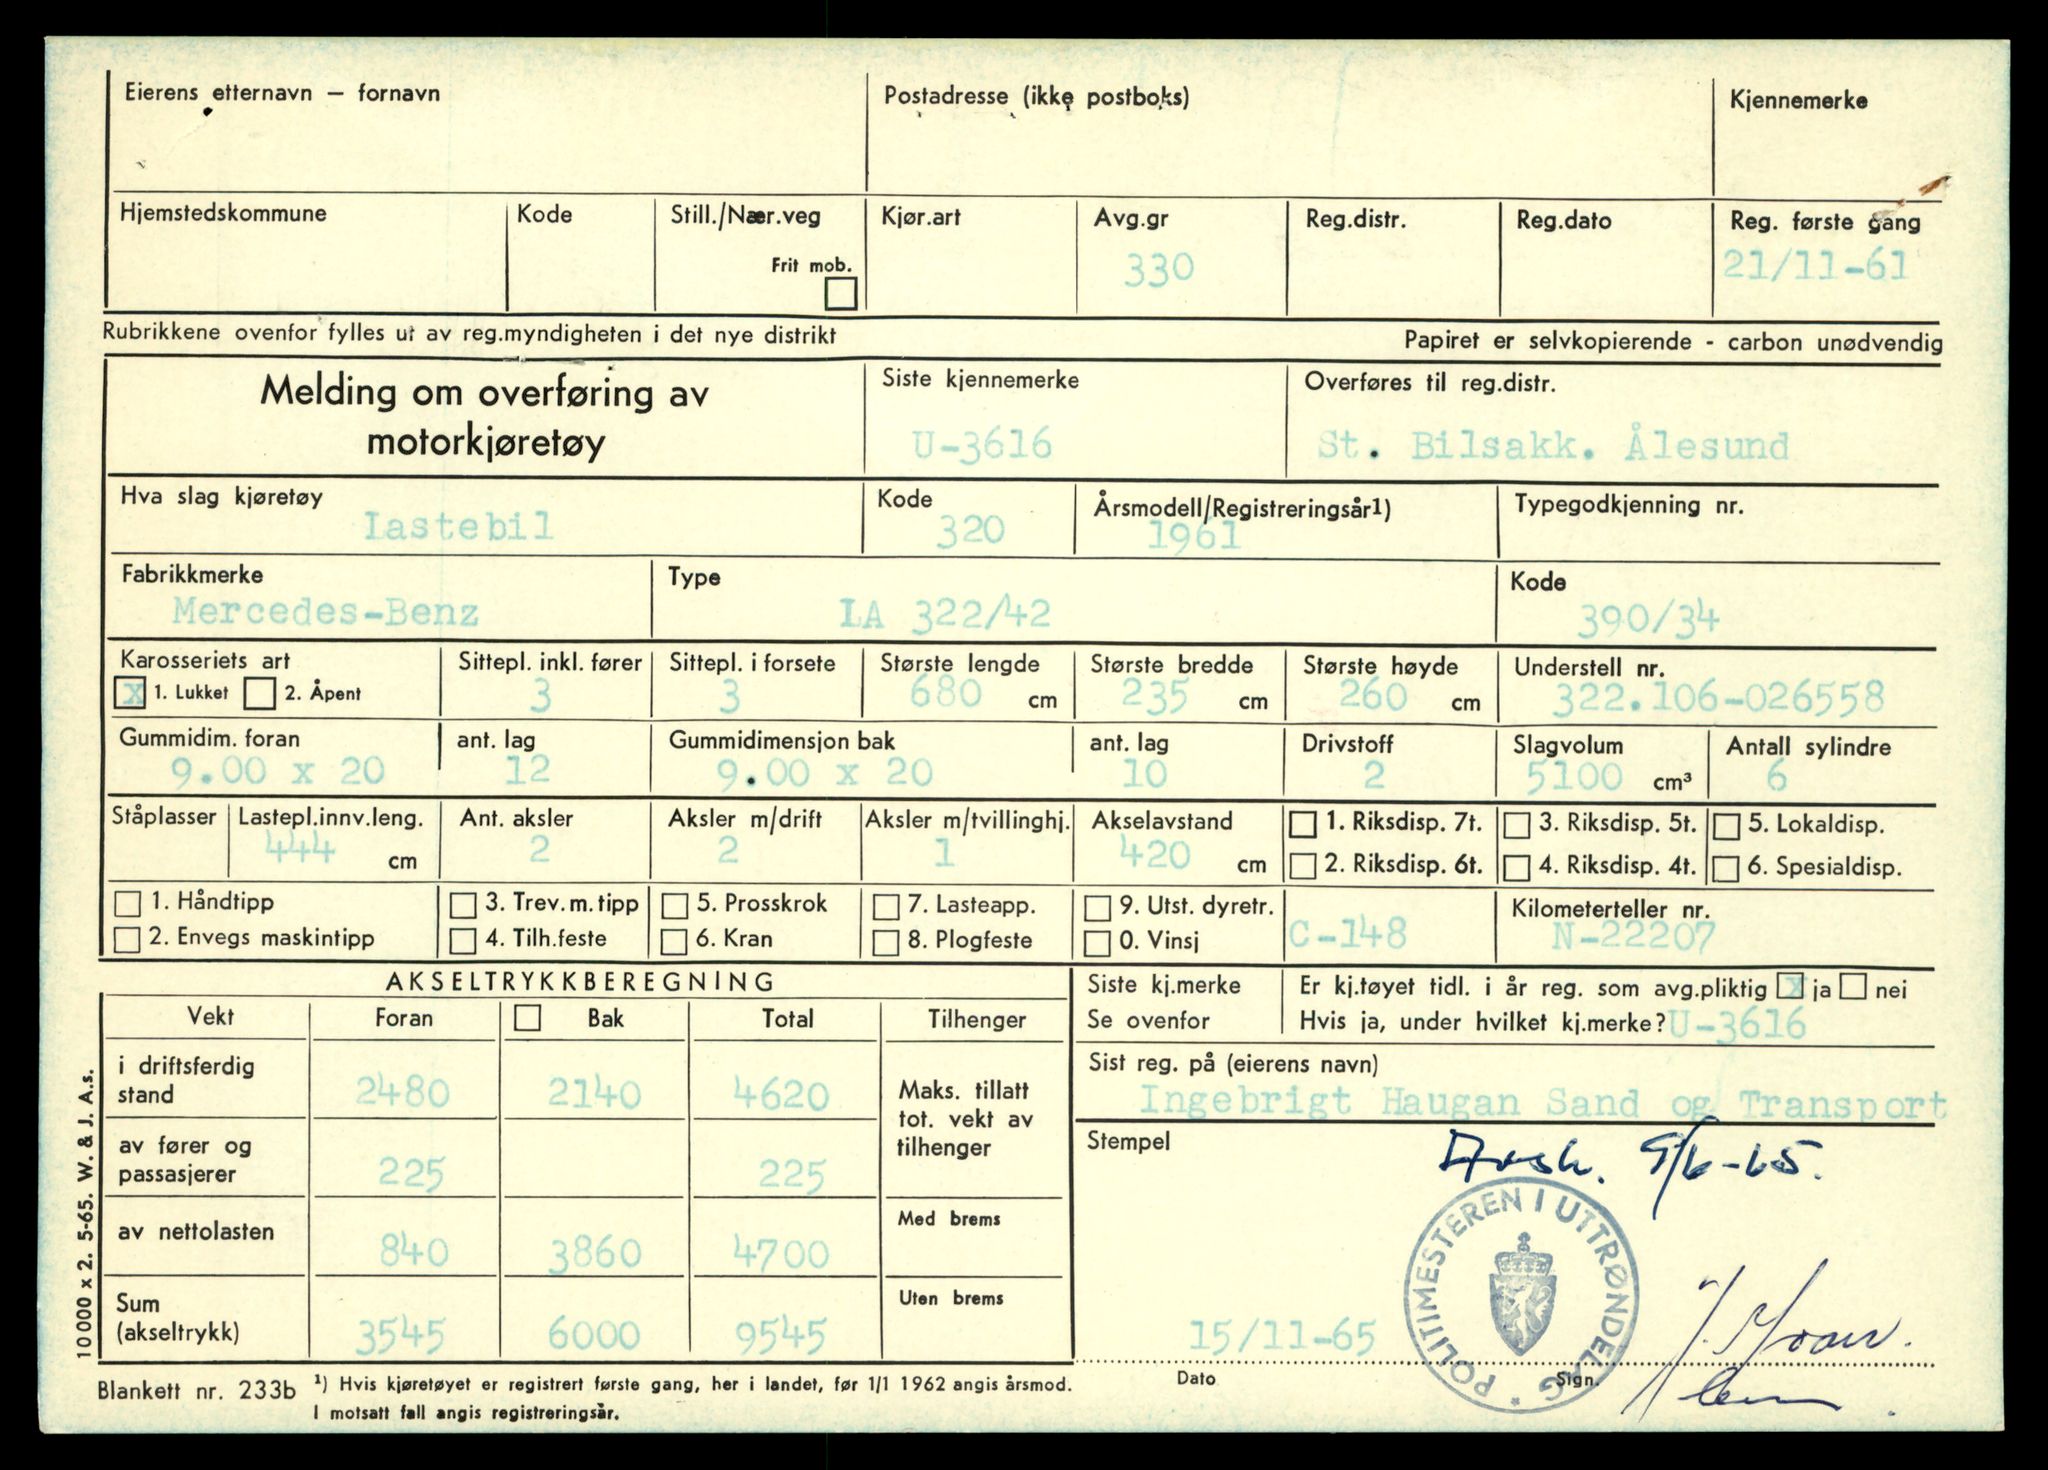 Eierens etternavn — fornavn
Postadresse (ikke postboks)
Kjennemerke
Hjemstedskommune
Kode
Still./Nær.veg
Frit mob.
Kjør.art
Avg.gr
330
Reg.distr.
Reg.dato
Reg. første gang
21/11-61
Rubrikkene ovenfor fylles ut av reg.myndigheten i det nye distrikt
Papiret er selvkopierende - carbon unødvendig
Melding om overføring av
motorkjøretøy
Siste kjennemerke
U-3616
Overføres til reg.distr.
St. Bilsakk. Ålesund
Hva slag kjøretøy
Lastebil
Kode
320
Årsmodell/Registreringsår1)
1961
Typegodkjenning nr.
Fabrikkmerke
Mercedes-Benz
Type
LA 322/42
Kode
390/34
Karosseriets art
x 1. Lukket 2. Åpent
Sittepl. inkl. fører
3
Sittepl. i forsete
3
Største lengde
680 cm
Største bredde
235 cm
Største høyde
260 cm
Understell nr.
322.106-026558
Gummidim. foran
9.00 x 20
ant. lag
12
Gummidimensjon bak
9.00 x 20
ant. lag
10
Drivstoff
2
Slagvolum
5100 cm³
Antall sylindre
6
Ståplasser
Lastepl.innv.leng.
444 cm
Ant. aksler
2
Aksler m/drift
2
Aksler m/tvillinghj.
1
Akselavstand
420 cm
1. Riksdisp. 7t.
2. Riksdisp. 6t.
3. Riksdisp. 5t.
4. Riksdisp. 4t.
5. Lokaldisp.
6. Spesialdisp.
1. Håndtipp
2. Envegs maskintipp
3. Trev. m. tipp
4. Tilh.feste
5. Prosskrok
6. Kran
7. Lasteapp.
8. Plogfeste
9. Utst. dyretr.
0. Vinsj
C-148
Kilometerteller nr.
N-22207
AKSELTRYKKBEREGNING
Vekt Foran Bak Total Tilhenger
i driftsferdig
stand
2480 2140 4620
av fører og
passasjerer
225 225
av nettolasten
840 3860 4700
Sum
(akseltrykk)
3545 6000 9545
Maks. tillatt
tot. vekt av
tilhenger
Med brems
Uten brems
Siste kj.merke
Se ovenfor
Er kj.tøyet tidl. i år reg. som avg.pliktig x ja nei
Hvis ja, under hvilket kj.merke? U-3616
Sist reg. på (eierens navn)
Ingebrigt Haugan Sand og Transport
Stempel
Avsk. 9/6-65.
POLITIMESTEREN I UTTRØNDELAG *
15/11-65
Dato
Sign.
10 000 x 2. 5-65. W. & J. A.s.
Blankett nr. 233b
¹) Hvis kjøretøyet er registrert første gang, her i landet, før 1/1 1962 angis årsmod.
I motsatt fall angis registreringsår.